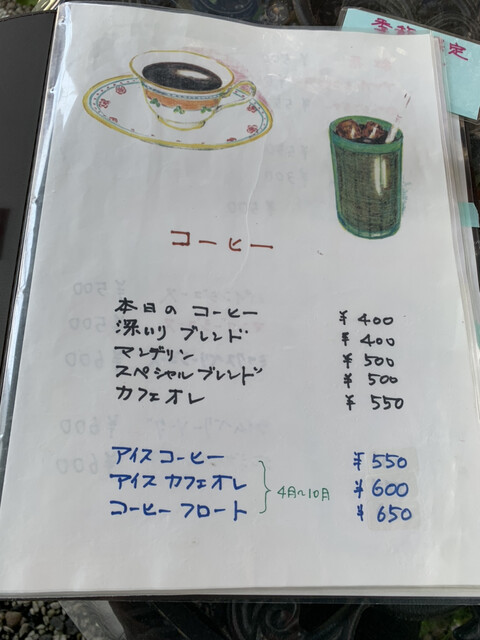 季節限定
コーヒー
本日の コーヒー ¥400
深いり ブレンド ¥400
マンデリン ¥500
スペシャル ブレンド ¥500
カフェ オレ ¥550
アイス コーヒー ¥550
アイス カフェ オレ ¥600
コーヒー フロート ¥650
4月〜10月